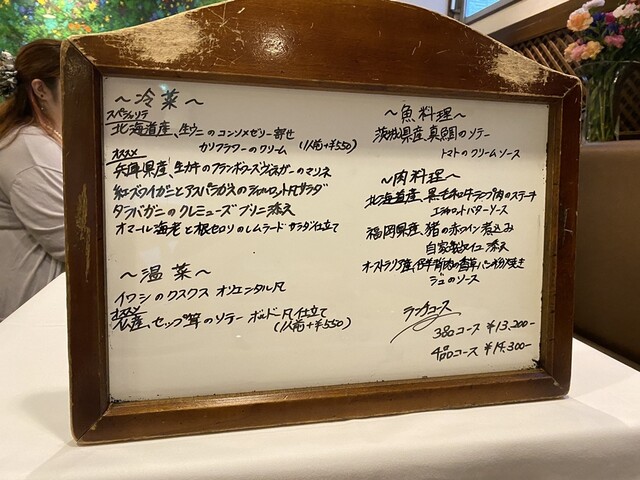 ～冷菜～
スペシャリテ
北海道産、生ウニのコンソメゼリー寄せ
カリフラワーのクリーム (1人前+¥550)
オススメ
兵庫県産、生カキのフランボワーズヴィネガーのマリネ
紅ズワイガニとアスパラガスのシャルロット風サラダ
タラバガニのクレミューズ ブリニ添え
オマール海老と根セロリのレムラード サラダ仕立て
～温菜～
イワシのクスクス オリエンタル風
オススメ
仏産、セップ茸のソテー ボルドー風仕立て
(1人前+¥550)
～魚料理～
茨城県産真鯛のソテー
トマトのクリームソース
～肉料理～
北海道産、黒毛和牛ランプ肉のステーキ
エシャロットバターソース
福岡県産、猪の赤ワイン煮込み
自家製ヌイユ添え
オーストラリア産、仔羊背肉の香草パン粉焼き
ジュのソース
ランチコース
3品コース ¥13,200-
4品コース ¥14,300-